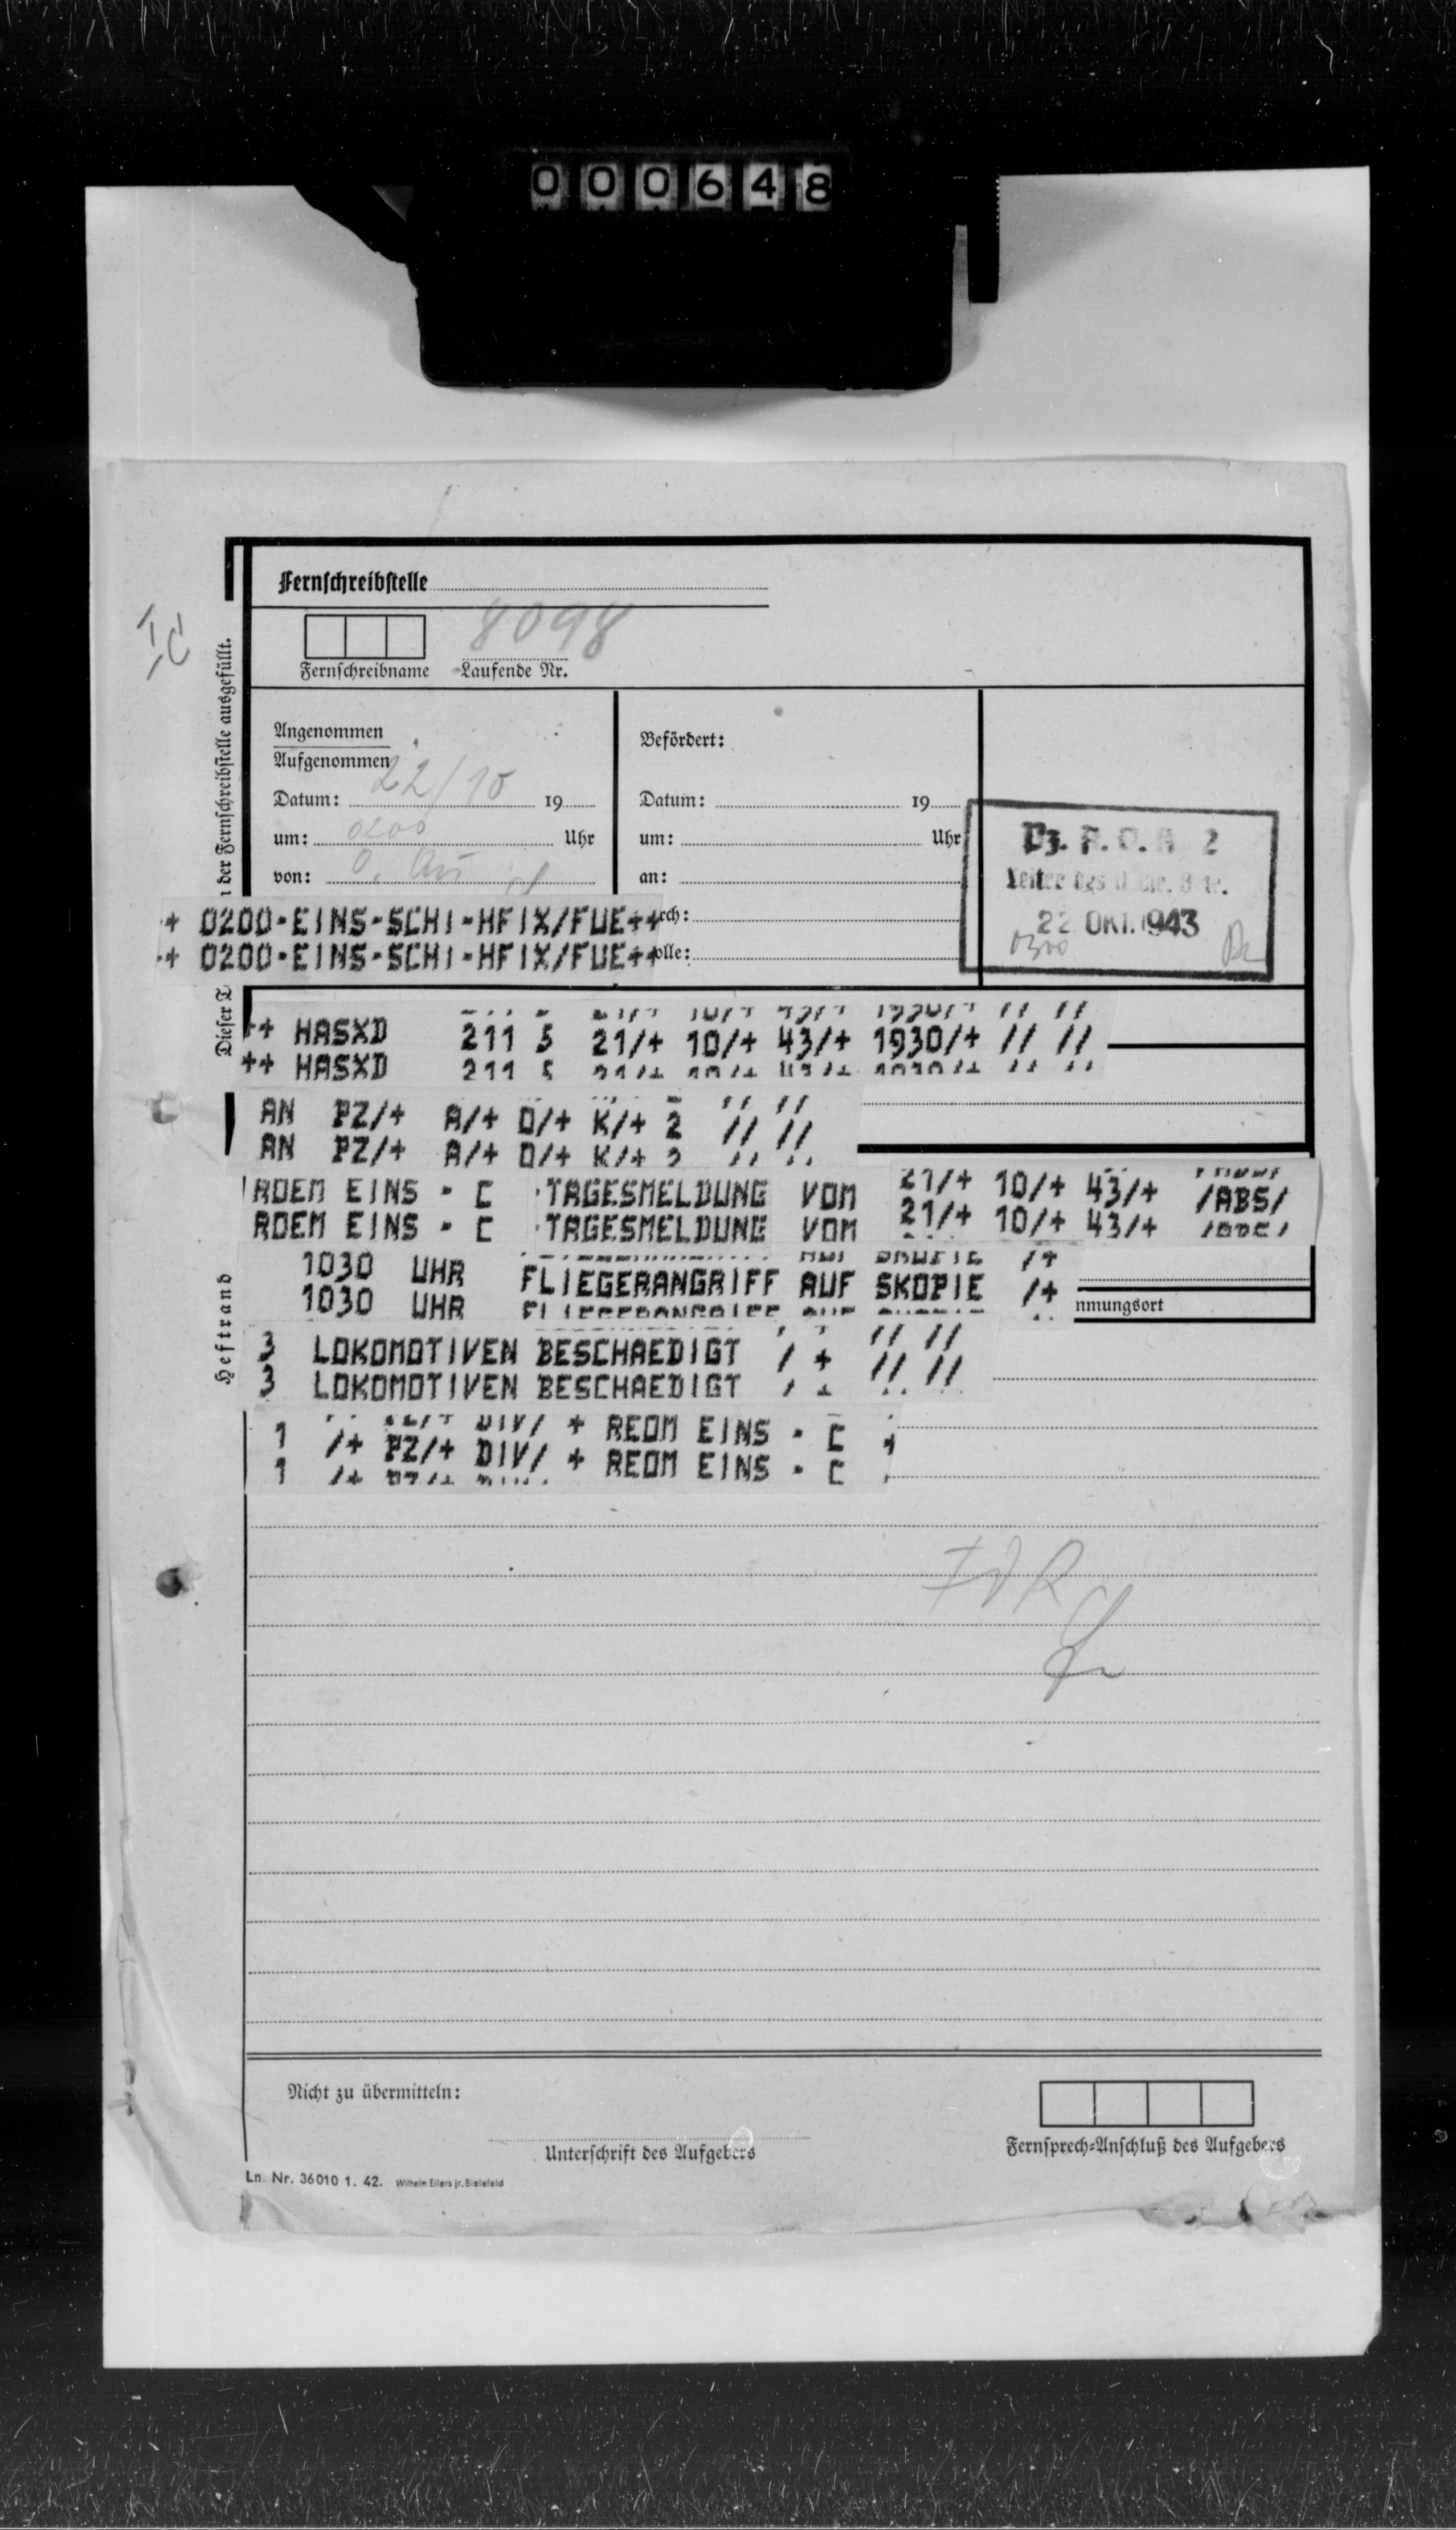 000648
Fernschreibstelle
8098
Fernschreibname Laufende Nr.
Ic
Angenommen
Aufgenommen
Datum: 22/10 19
um: 0200 Uhr
von:
Befördert:
Datum: 19
um: Uhr
an:
rch:
olle:
Pz. A.O.K 2
22. OKT. 1943
0300
n der Fernschreibstelle ausgefüllt.
Dieser T
Heftrand
+ 0200-EINS-SCHI-HFIX/FUE++
+ 0200-EINS-SCHI-HFIX/FUE++
++ HASXD 211 5 21/+ 10/+ 43/+ 1930/+ // //
++ HASXD 211 5 21/+ 10/+ 43/+ 1930/+ // //
AN PZ/+ A/+ O/+ K/+ 2 // //
AN PZ/+ A/+ O/+ K/+ 2 // //
ROEM EINS - C -TAGESMELDUNG VOM 21/+ 10/+ 43/+ /ABS/
ROEM EINS - C -TAGESMELDUNG VOM 21/+ 10/+ 43/+ /ABS/
1030 UHR FLIEGERANGRIFF AUF SKOPIE /+
1030 UHR FLIEGERANGRIFF AUF SKOPIE /+
nmungsort
3 LOKOMOTIVEN BESCHAEDIGT / + // //
3 LOKOMOTIVEN BESCHAEDIGT / + // //
1 /+ PZ/+ DIV/ + REOM EINS - C +
1 /+ PZ/+ DIV/ + REOM EINS - C
FdR
Nicht zu übermitteln:
Unterschrift des Aufgebers
Fernsprech-Anschluß des Aufgebers
Ln. Nr. 36010 1. 42. Wilhelm Eilers jr., Bielefeld